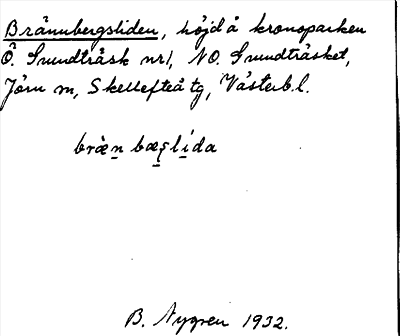 Brännbergsliden, höjd å kronoparken
Ö. Grundträsk nr 1, NO. Grundträsket,
Jörn sn, Skellefteå tg, Västerb. l.
bràn̲ bæs̲lí̲da
B. Nygren 1932.